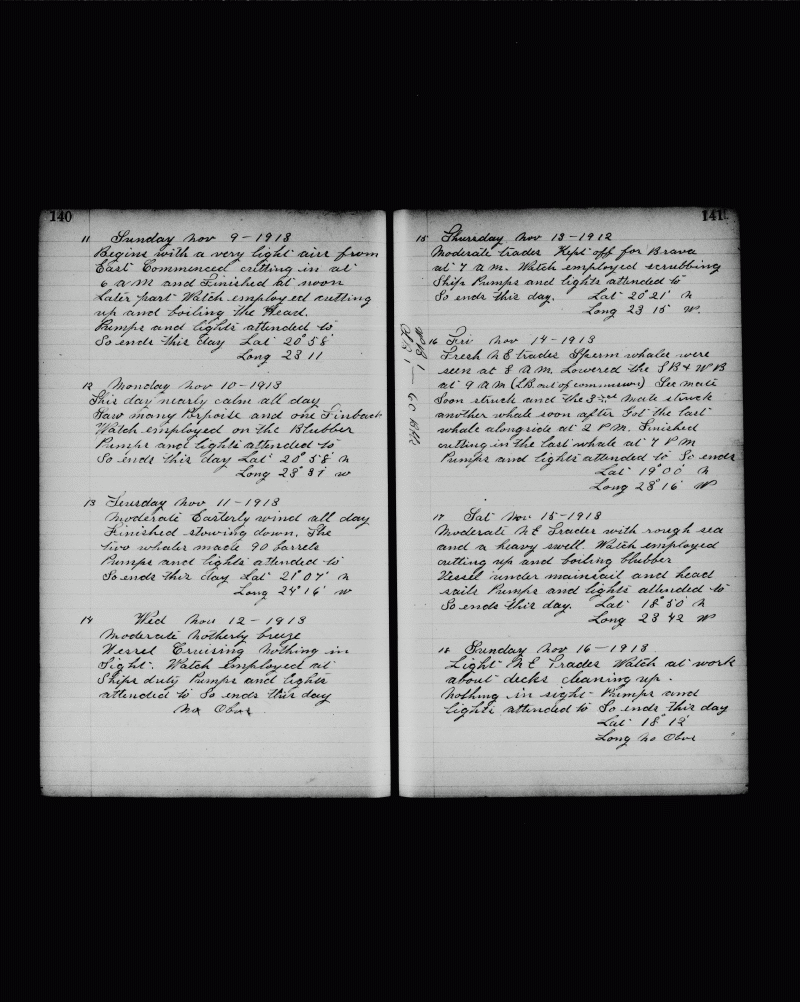 140
11 Sunday Nov 9 - 1913
Begins with a very light airs from
East Commenced cutting in at
6 a M and Finished at noon
Later part Watch employed cutting
up and boiling the Head.
Pumps and lights attended to
So ends this day Lat 20° 58'
Long 23 11
12 Monday Nov 10 - 1913
This day nearly calm all day
Saw many Porpoise and one Finback
Watch employed on the Blubber
Pumps and lights attended to
So ends this day Lat 20° 58' N
Long 23° 31' W
13 Teusday Nov 11 - 1913
Moderate Easterly wind all day
Finished stowing down. The
two whales made 90 barrels
Pumps and lights attended to
So ends this day Lat 21° 07' N
Long 24° 16' W
14 Wed Nov 12 - 1913
Moderate Notherly breze
Vessel Cruising Nothing in
Sight. Watch employed at
Ships duty Pumps and lights
attended to So ends this day
No Obs
141.
15 Thursday Nov 13 - 1912
Moderate trades Kept off for Brava
at 7 a m. Watch employed scrubbing
Ship Pumps and lights attended to
So ends this day. Lat 20° 21' N
Long 23 15 W.
16 Fri Nov 14 - 1913
Fresh N E trades Sperm whales were
seen at 8 A M. Lowered the S B & W B
at 9 A M (L B out of commision) Sec mate
Soon struck and the 3rd mate struck
another whale soon after Got the last
whale alongside at 2 P M. Finished
cutting in the last whale at 7 P M
Pumps and lights attended to So ends
Lat 19° 00' N
Long 23° 16' W
W B 1
S B 1 — 60 Bbls
17 Sat Nov 15 - 1913
Moderate N E Trades with rough sea
and a heavy swell. Watch employed
cutting up and boiling blubber
Vessel under mainsail and head
sails Pumps and lights attended to
So ends this day. Lat 18° 50' N
Long 23 42 W
18 Sunday Nov 16 - 1913
Light N E Trades Watch at work
about decks cleaning up.
Nothing in sight - Pumps and
lights attended to So ends this day
Lat 18° 12'
Long No Obs